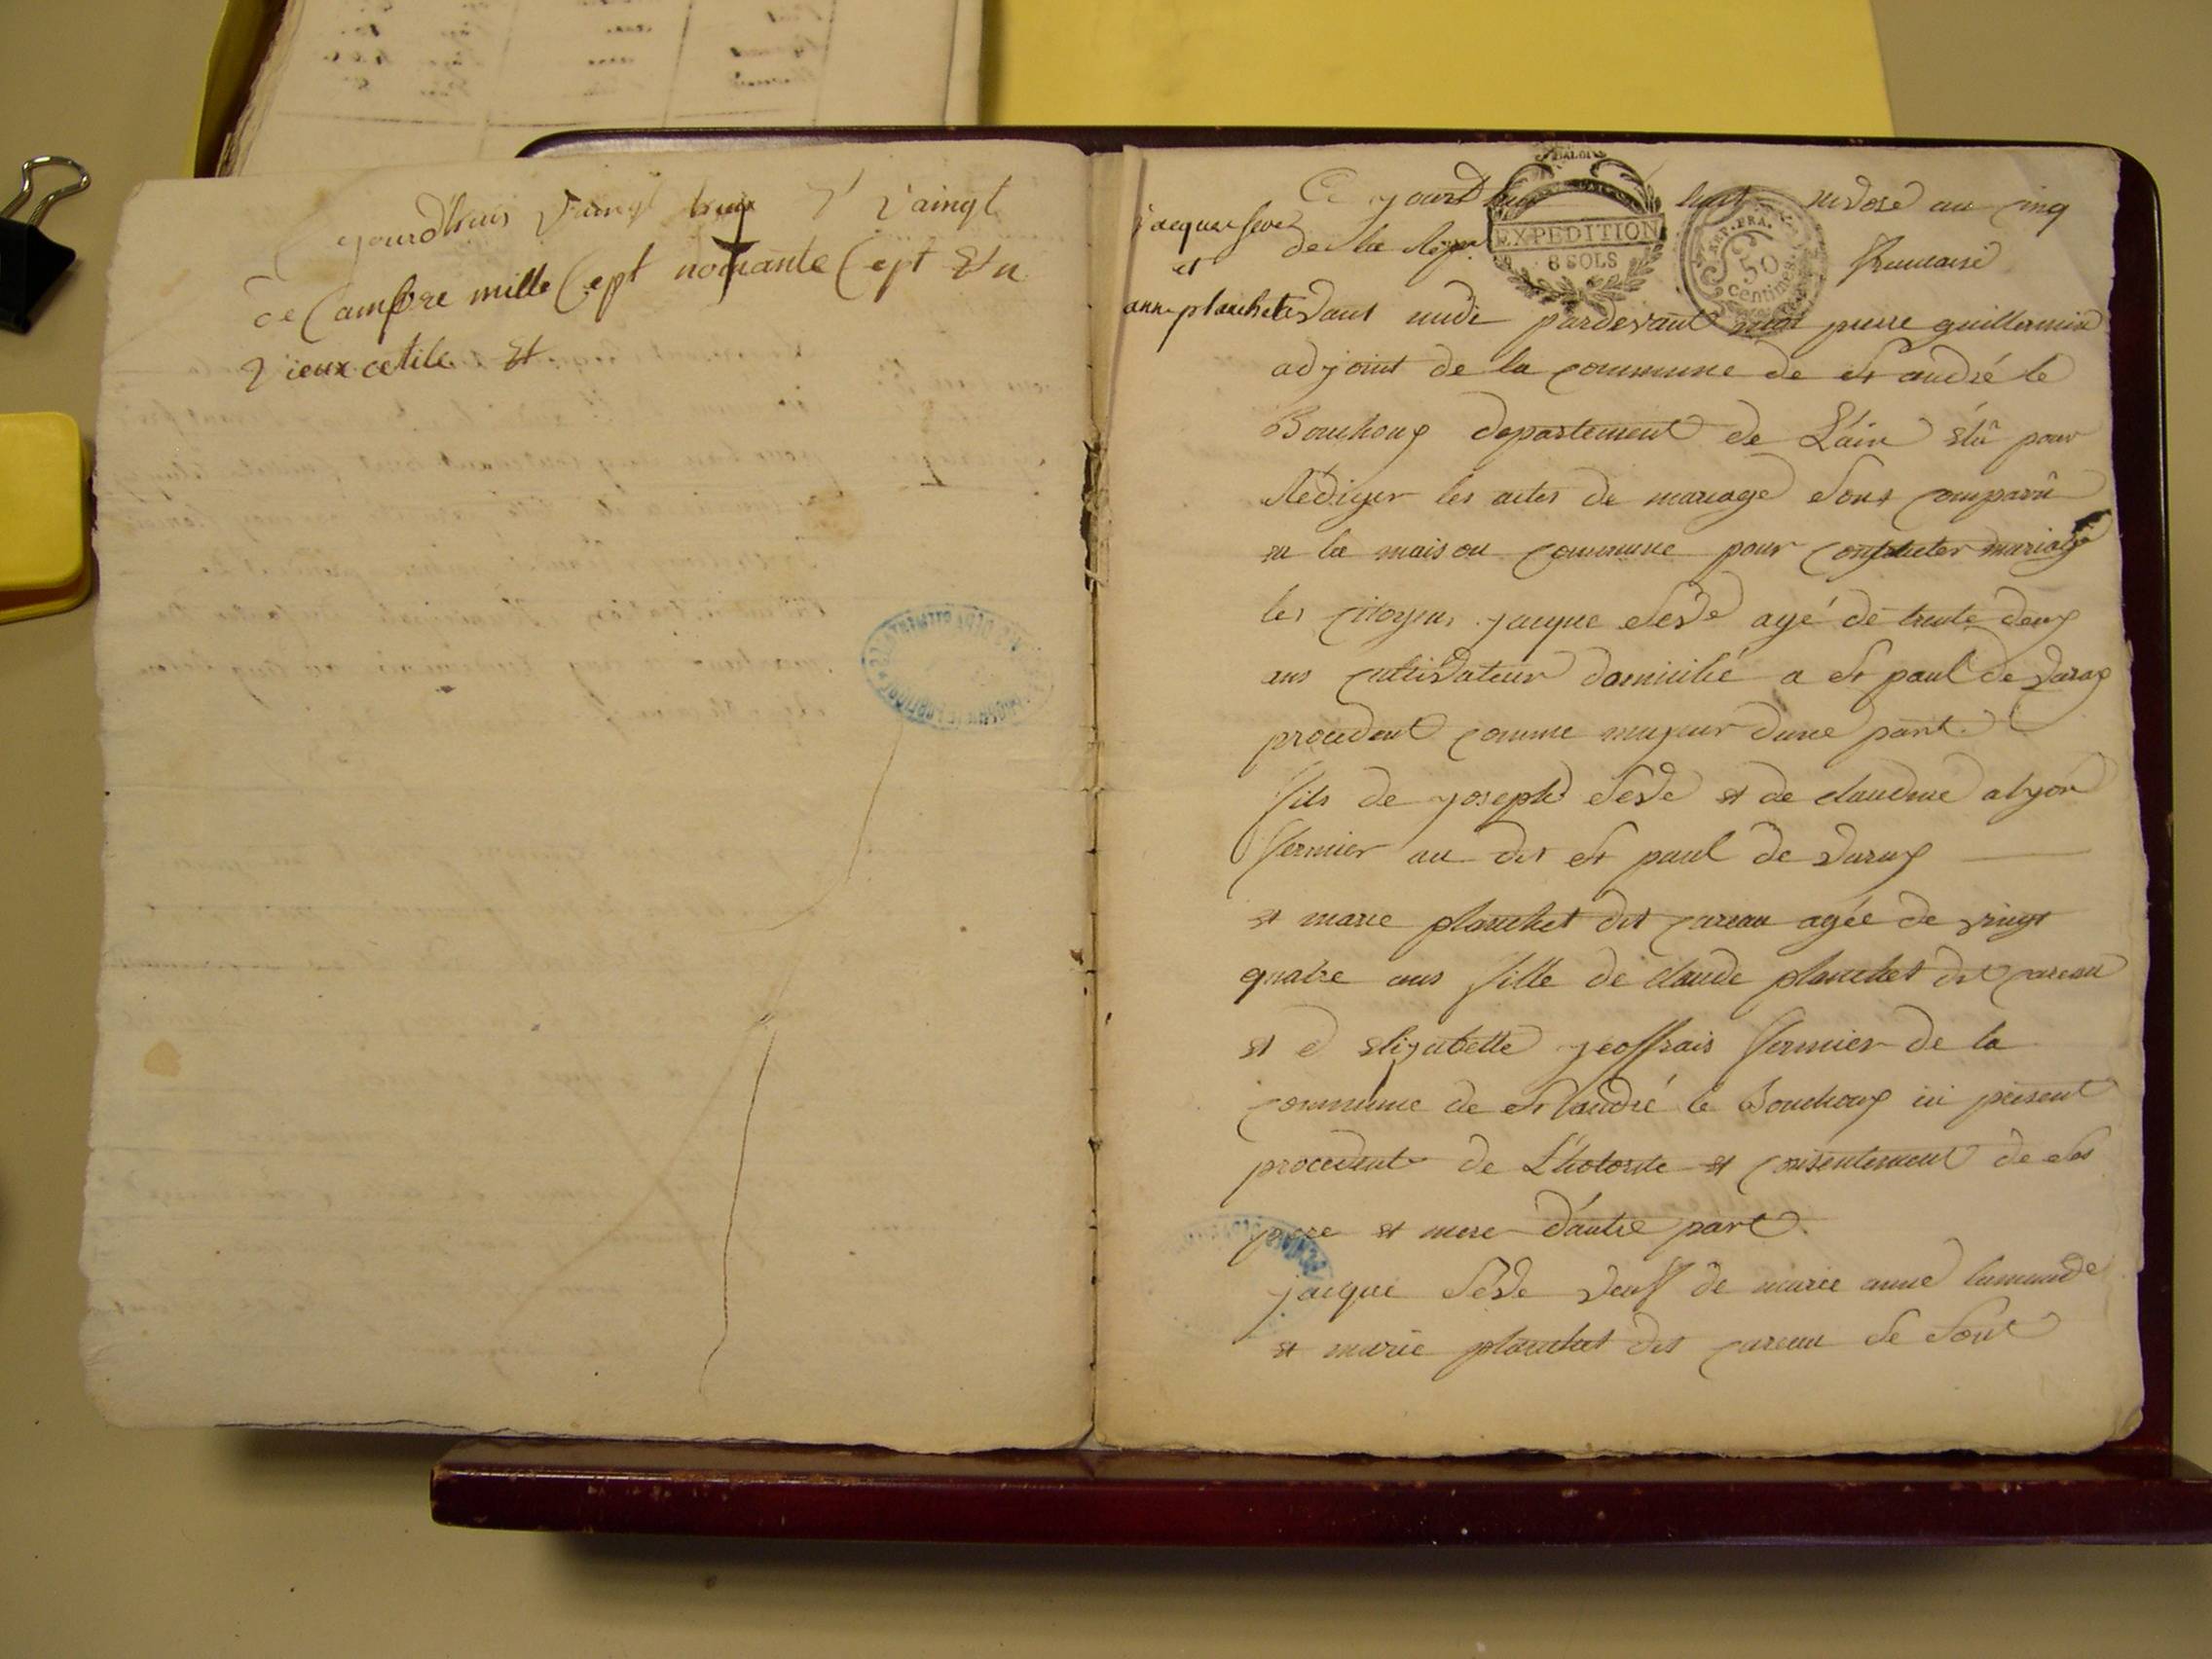 yourdhuis Vaingt
de Cambre mille Cept nonante Cept
Vieux cetile et
Ce yourd huy huit nivose an cinq
jacque seve
et
anne planchet
de la Rep. francaise
EXPEDITION
8 SOLS
REP. FRA.
50
centimes
avant midi pardevant moi pierre guillermin
adjoint de la commune de st andré le
Bouchoux departement de L'ain élû pour
Rédiger les actes de mariage sont comparû
en la maison commune pour contracter mariage
les citoyens jacque seve agé de trente deux
ans cultivateur domicilié a st paul de varax
procedent comme majeur dune part
fils de joseph seve et de claudine alyon
fermier au dit st paul de varax
et marie planchet dit careau agée de vingt
quatre ans fille de claude planchet dit careau
et d elizabette jeoffrais fermier de la
commune de st andré le Bouchoux ici present
procedent de L'hotorite et consentement de ses
pere et mere d'autre part.
jacque seve veuf de marie anne
et marie planchet dit careau se sont